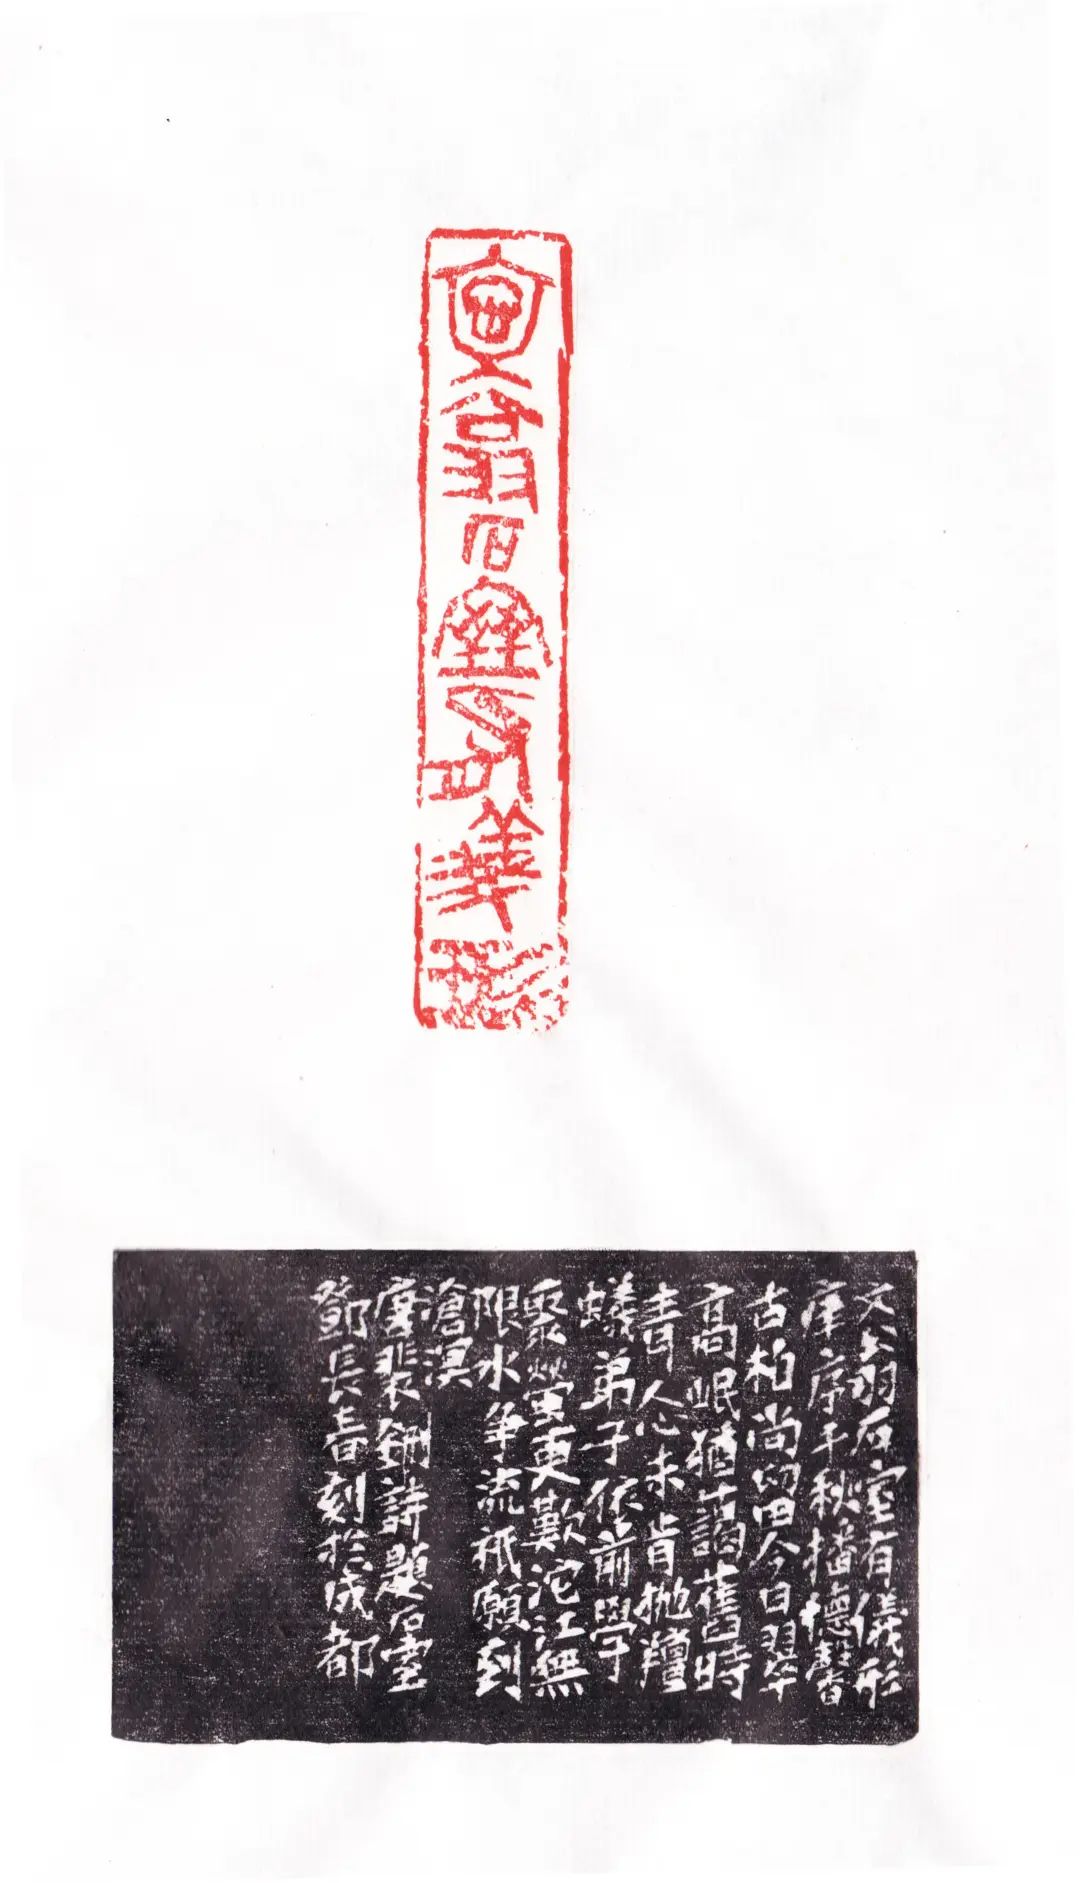 文翁石室有儀形
文翁石室有儀形
庠序千秋播德馨
古柏尚留今日翠
高岷猶藹舊時
青人心未肯抛羶
蟻弟子依前學
聚螢更歎沱江無
限水爭流祇願到
滄溟
唐裴鉶詩題石室
鄧長春刻於成都